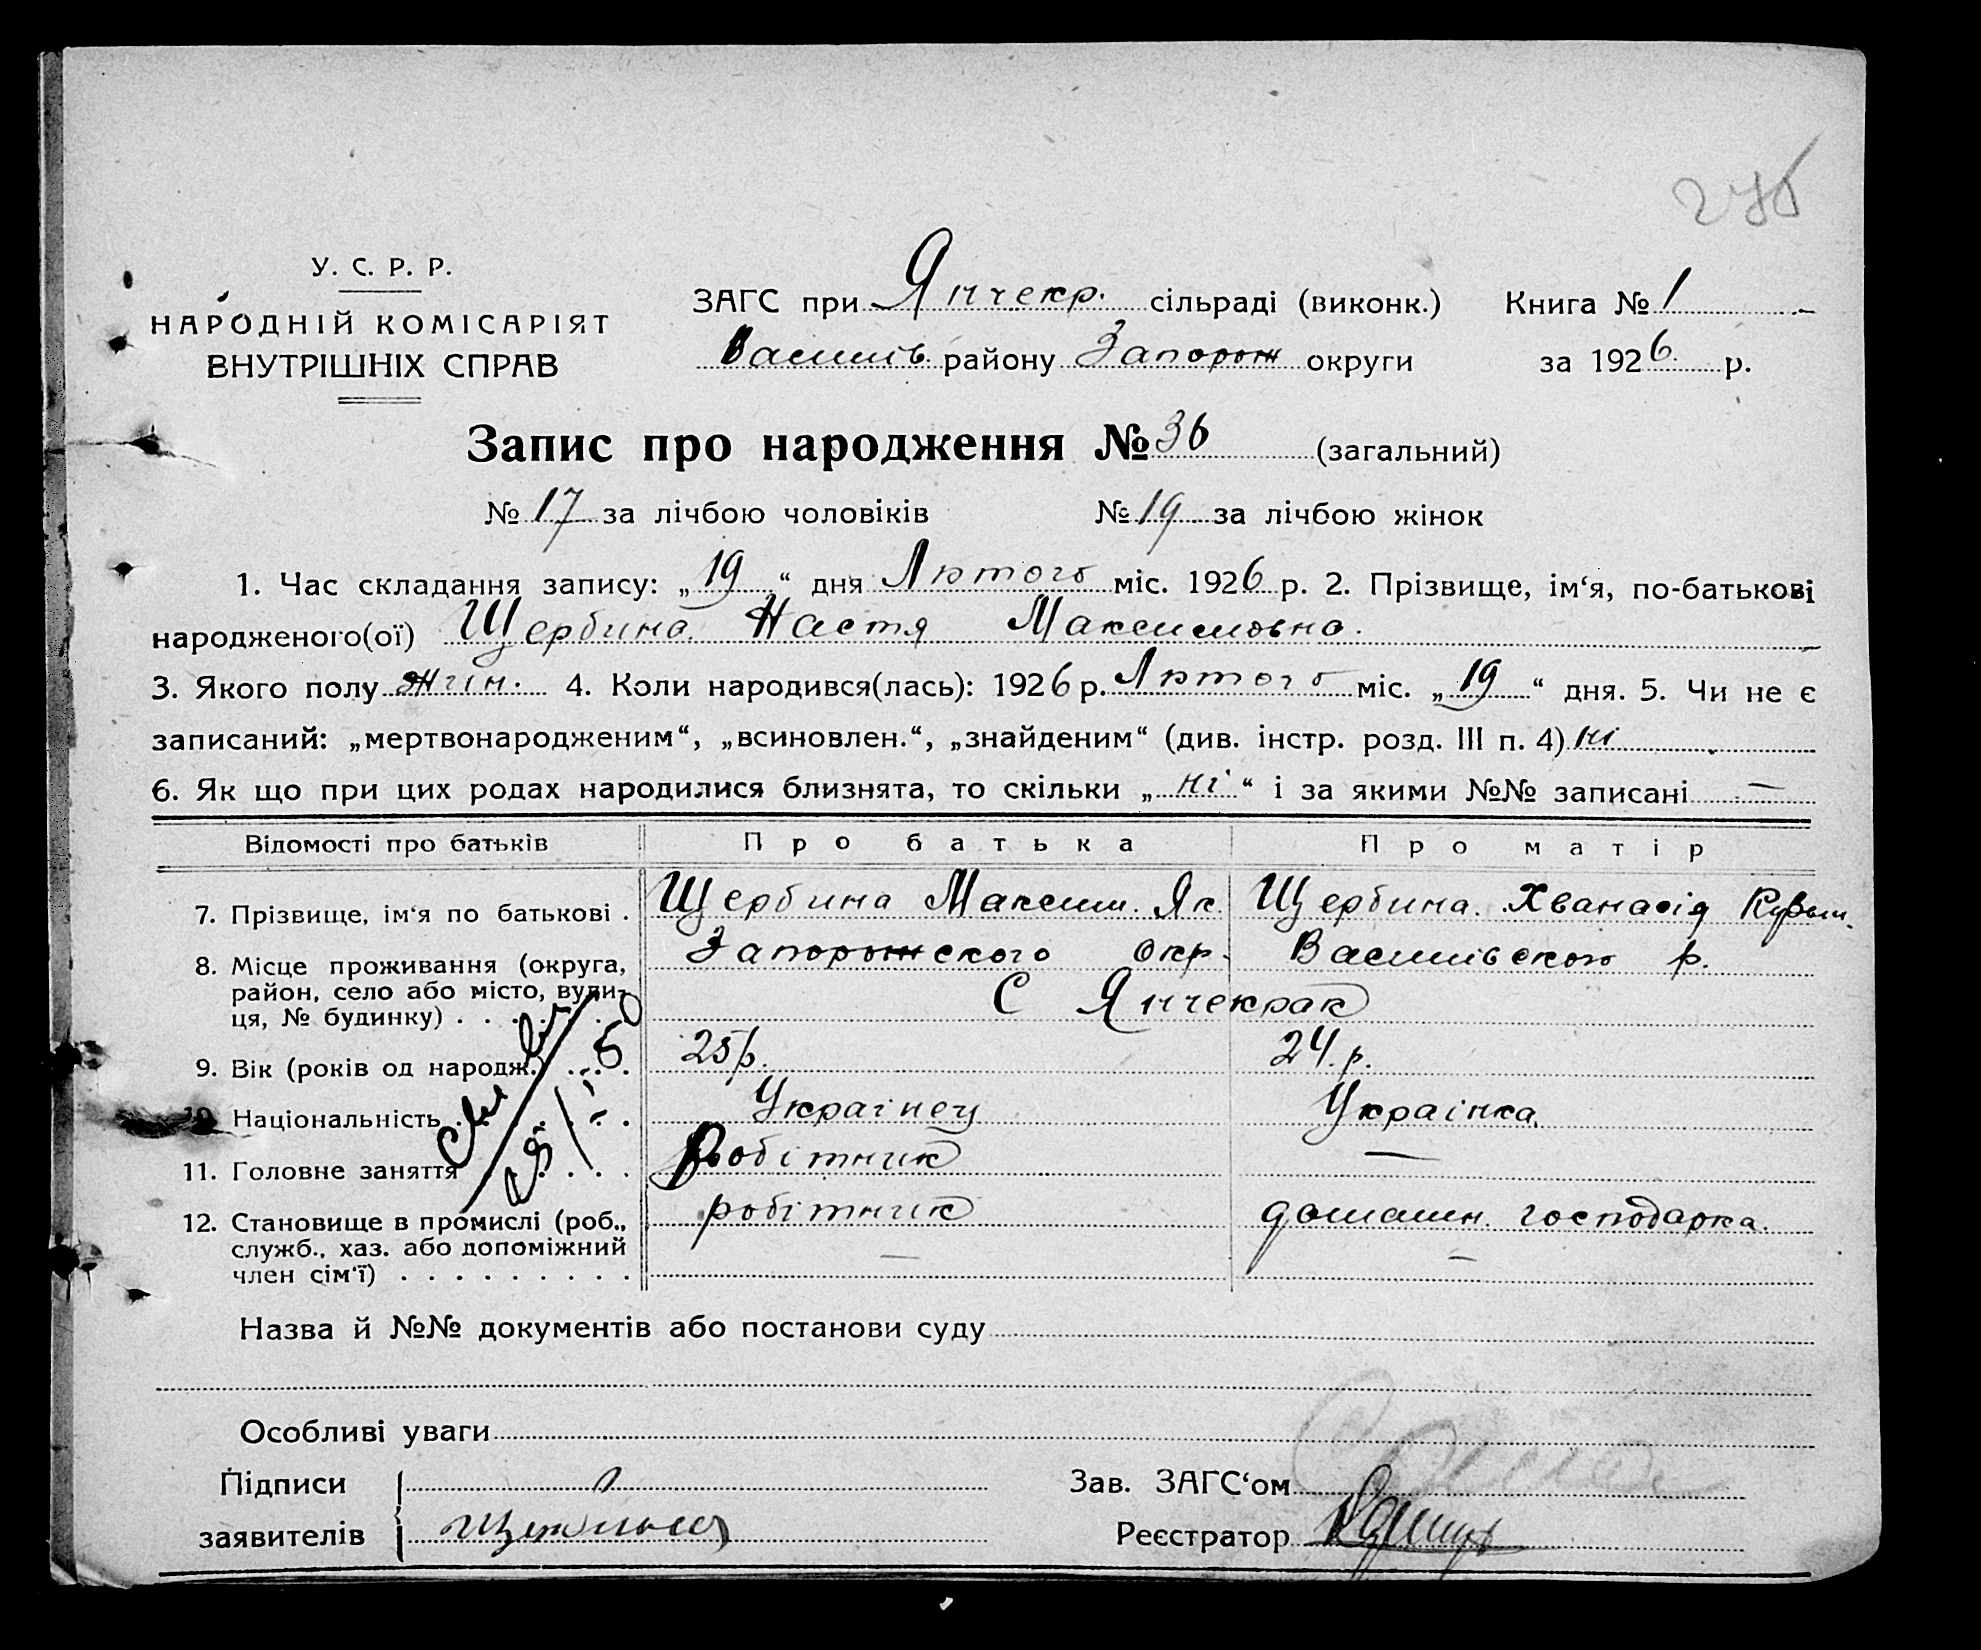 276
У. С. Р. Р.
НАРОДНІЙ КОМІСАРІЯТ
ВНУТРІШНІХ СПРАВ
ЗАГС при Янчекр. сільраді (виконк.) Книга № 1
Василів. району Запорож округи за 1926 р.
Запис про народження № 36 (загальний)
№ 17 за лічбою чоловіків № 19 за лічбою жінок
1. Час складання запису: „19“ дня Лютого міс. 1926 р. 2. Прізвище, ім‘я, по-батькові
народженого(ої) Щербина Настя Максимовна.
3. Якого полу жін. 4. Коли народився(лась): 1926 р. Лютого міс. „19“ дня. 5. Чи не є
записаний: „мертвонародженим“, „всиновлен.“, „знайденим“ (див. інстр. розд. III п. 4) ні
6. Як що при цих родах народилися близнята, то скільки „ні“ і за якими №№ записані —
Відомості про батьків Про батька Про матір
7. Прізвище, ім‘я по батькові . Щербина Максим. Як. Щербина. Хванасія
8. Місце проживання (округа, Запорожского окр. Василівского р.
район, село або місто, вули-
ця, № будинку) . . . С Янчекрак
9. Вік (років од народж.) . . . 25 р. 24. р.
10. Національність . . . Українец Українка.
11. Головне заняття . . . Робітник —
12. Становище в промислі (роб., робітник домашн. господарка.
служб., хаз. або допоміжний — —
член сім‘ї) . . . . . . . . .
Назва й №№ документів або постанови суду
Особливі уваги
Підписи Зав. ЗАГС‘ом
заявителів Реєстратор